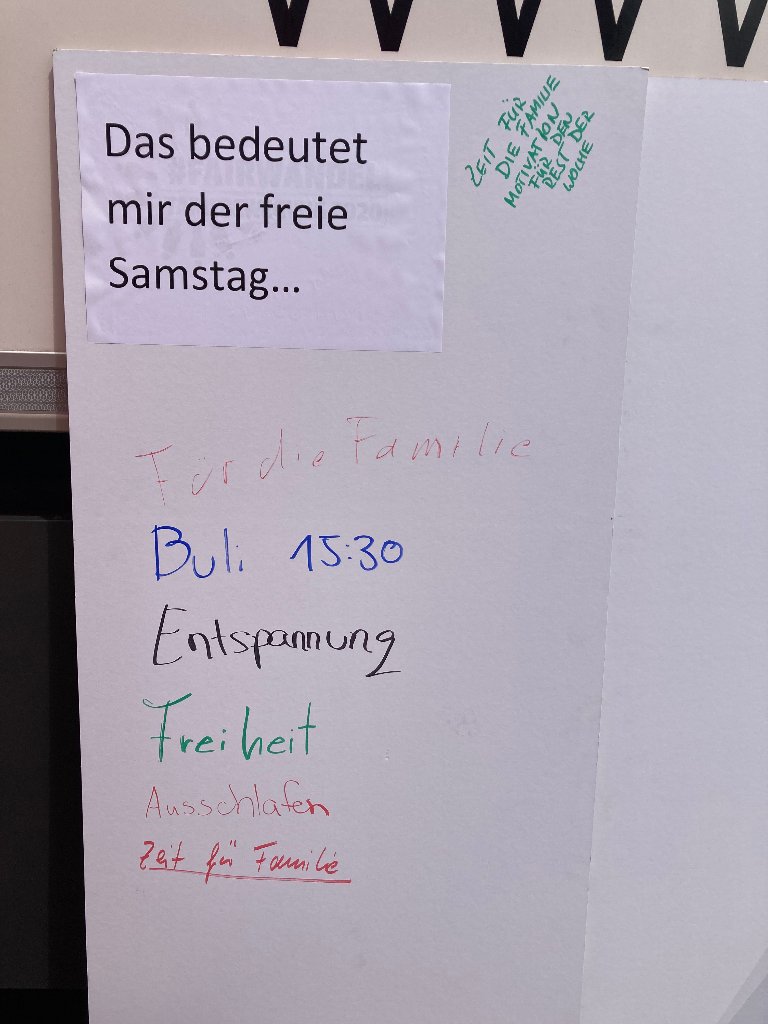 Das bedeutet
mir der freie
Samstag...
ZEIT FÜR
DIE FAMILIE
MOTIVATION
FÜR DEN
REST DER
WOCHE
Für die Familie
Buli 15:30
Entspannung
Freiheit
Ausschlafen
Zeit für Familie